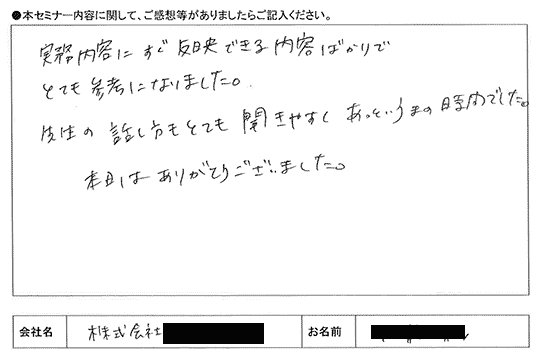 ●本セミナー内容に関して、ご感想等がありましたらご記入ください。
実務内容にすぐ反映できる内容ばかりで
とても参考になりました。
先生の話し方もとても聞きやすくあっというまの時間でした。
本日はありがとうございました。
会社名 株式会社 お名前